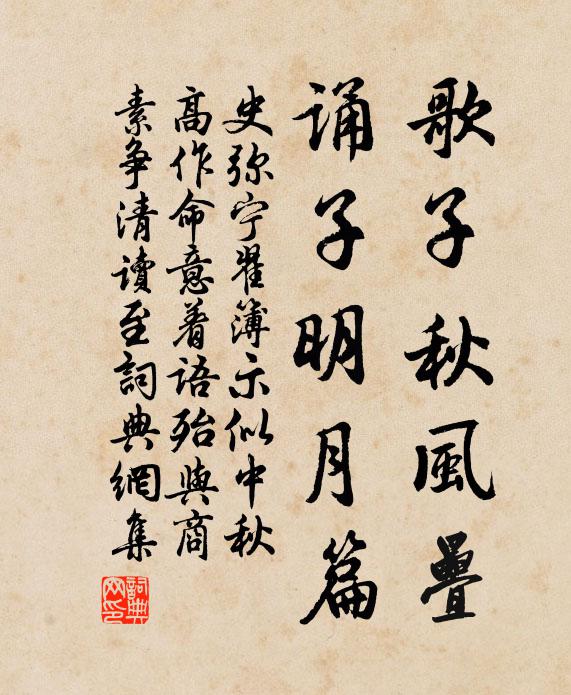 歌子秋風疊
诵子明月篇
史弥宁翟簿示似中秋
高作命意着语殆與商
素争清讀至詞典網集
詞典网印